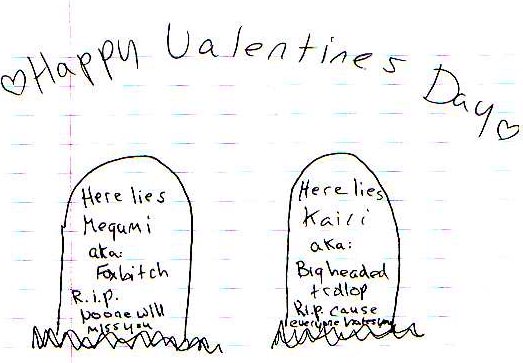 ♡Happy Valentines Day♡
Here lies
Megumi
aka:
Foxbitch
R.i.p.
Noone will
miss you
Here lies
Kairi
aka:
Bigheaded
trollop
R.i.p. cause
everyone hates you